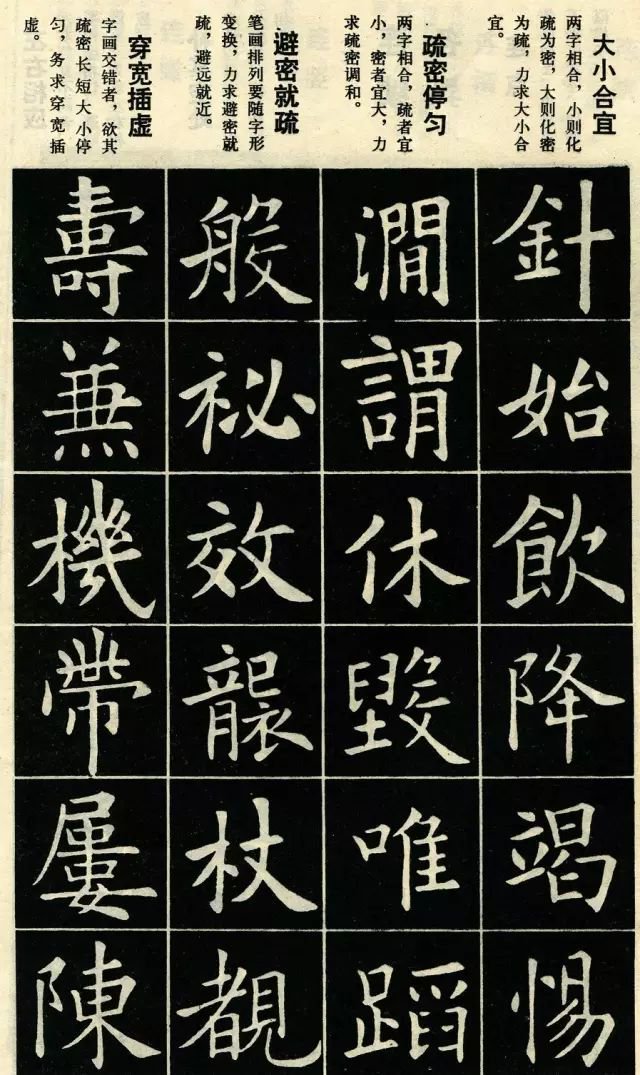 大小合宜
两字相合，小则化
疏为密，大则化密
为疏，力求大小合
宜。
針
始
飲
降
竭
惕
疏密停匀
两字相合，疏者宜
小，密者宜大，力
求疏密调和。
澗
謂
休
毀
唯
蹈
避密就疏
笔画排列要随字形
变换，力求避密就
疏，避远就近。
般
祕
效
襲
杖
覩
穿宽插虚
字画交错者，欲其
疏密长短大小停
匀，务求穿宽插
虚。
壽
兼
機
帶
屢
陳